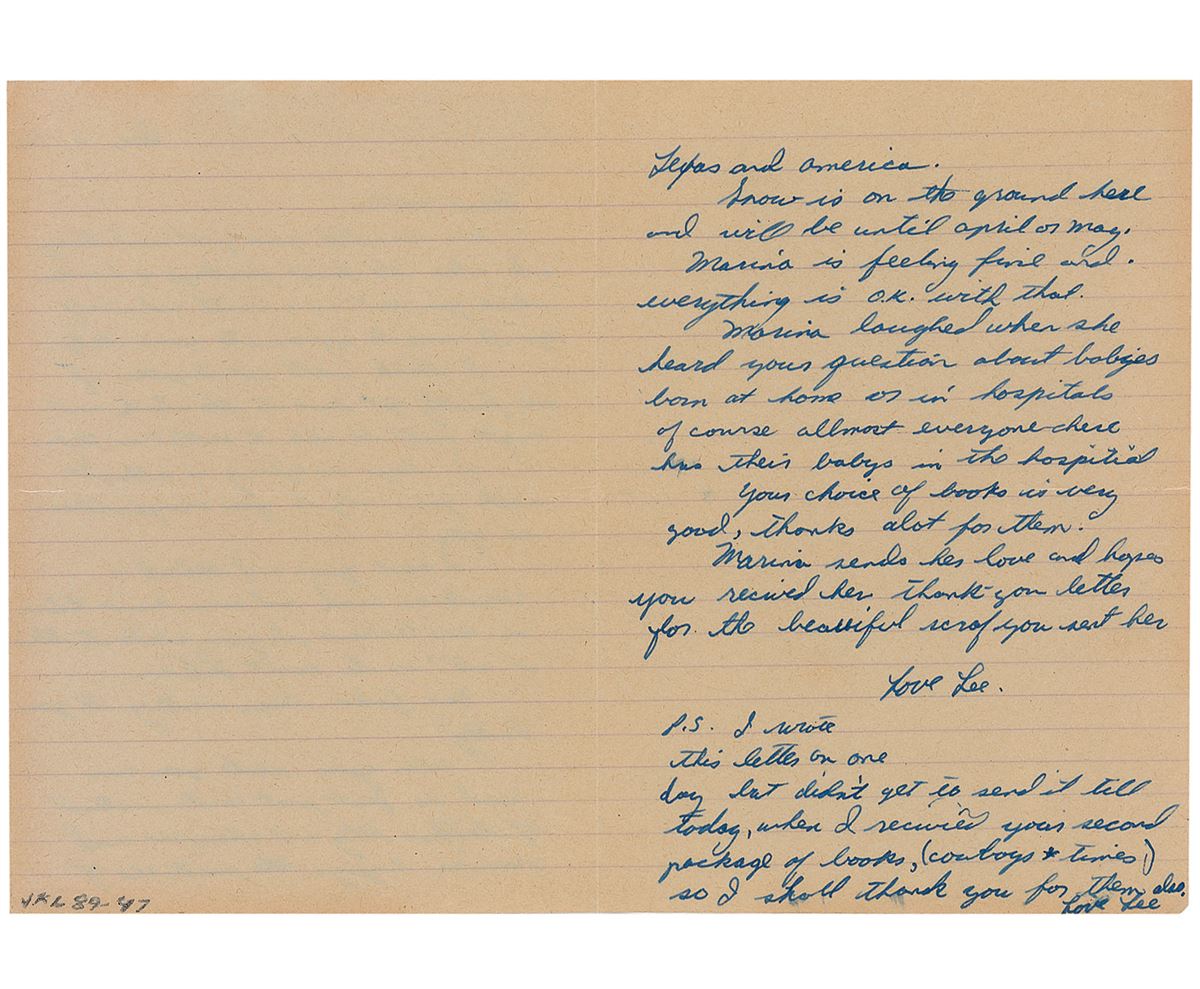 Texas and america.
Snow is on the ground here
and will be until april or may.
Marina is feeling fine and.
everything is o.k. with that.
Marina laughed when she
heard your question about babies
born at home or in hospitals
of course allmost everyone here
has their babys in the hospitial
Your choice of books is very
good, thanks alot for them.
Marina sends her love and hopes
you recived her thank-you letter
for the beauiful scraf you sent her
Love Lee.
P.S. I wrote
this letter on one
day but didn't get to send it till
today, when I recivied your second
package of books, (cowboys * times)
so I shall thank you for them also.
Love Lee
89-47